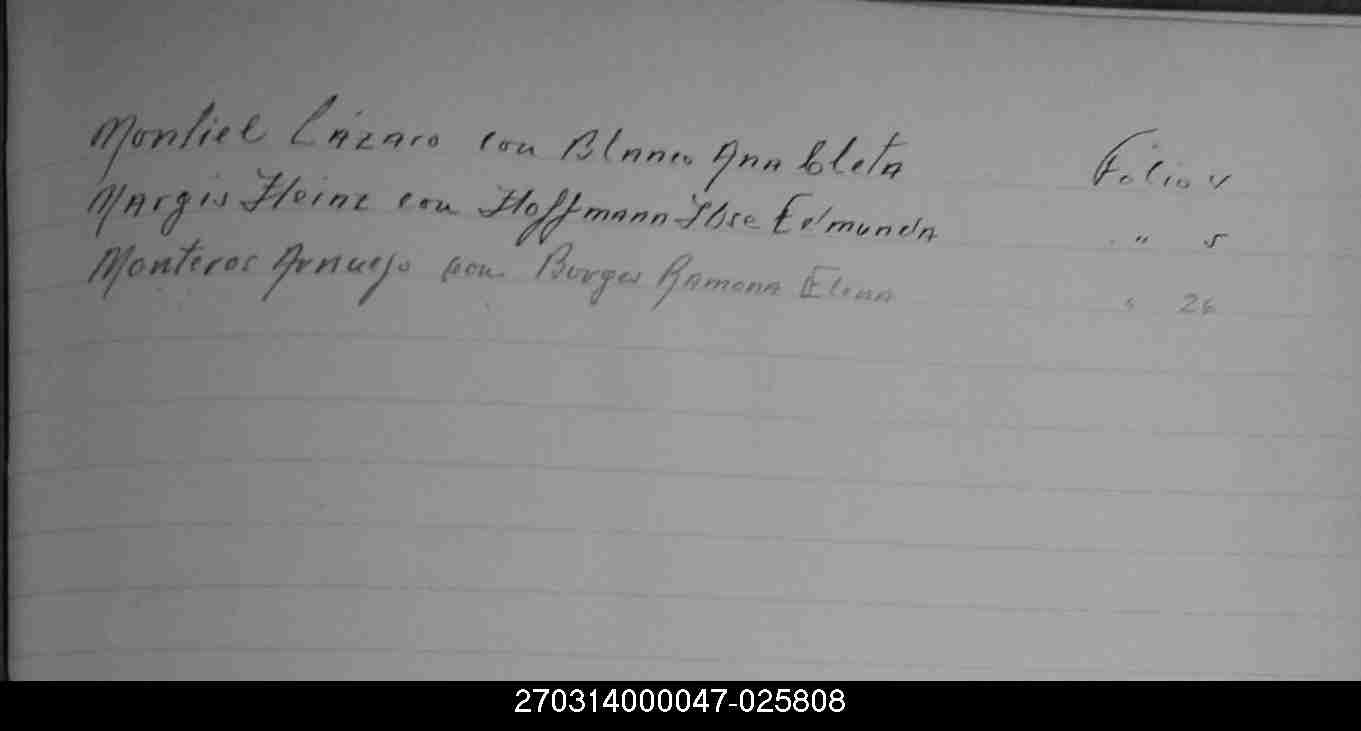 Montiel Lázaro con Blanco Ana Cleta Folio
Margis Heinz con Hoffmann Ilse Edmunda " 5
Monteros con Borges Ramona Elena " 26
270314000047-025808